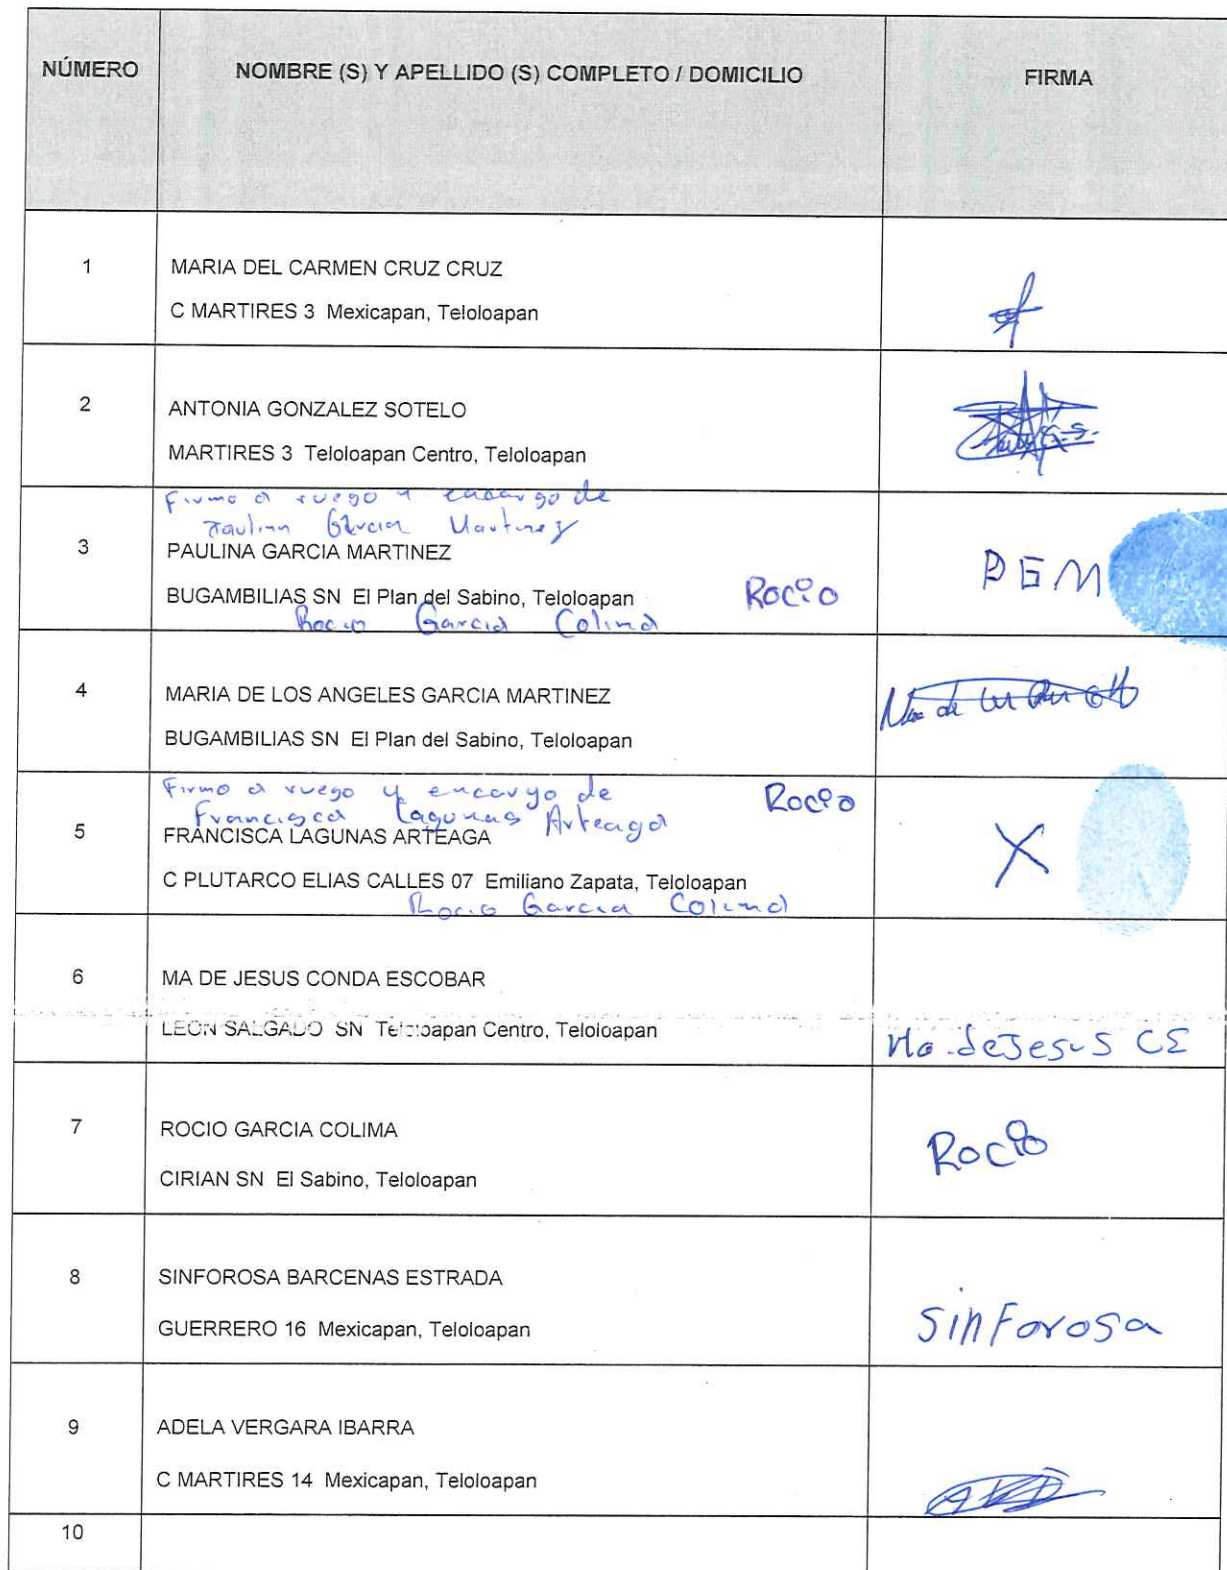 NÚMERO NOMBRE (S) Y APELLIDO (S) COMPLETO / DOMICILIO FIRMA
1 MARIA DEL CARMEN CRUZ CRUZ
C MARTIRES 3 Mexicapan, Teloloapan
2 ANTONIA GONZALEZ SOTELO
MARTIRES 3 Teloloapan Centro, Teloloapan
Firmo a ruego y encargo de
Paulina Garcia Martinez
3 PAULINA GARCIA MARTINEZ PGM
BUGAMBILIAS SN El Plan del Sabino, Teloloapan Rocio
Rocio Garcia Colima
4 MARIA DE LOS ANGELES GARCIA MARTINEZ
BUGAMBILIAS SN El Plan del Sabino, Teloloapan
Firmo a ruego y encargo de Rocio
Francisca Lagunas Arteaga
5 FRANCISCA LAGUNAS ARTEAGA X
C PLUTARCO ELIAS CALLES 07 Emiliano Zapata, Teloloapan
Rocio Garcia Colima
6 MA DE JESUS CONDA ESCOBAR
LEON SALGADO SN Teloloapan Centro, Teloloapan
Ma. de Jesus CE
7 ROCIO GARCIA COLIMA Rocio
CIRIAN SN El Sabino, Teloloapan
8 SINFOROSA BARCENAS ESTRADA
GUERRERO 16 Mexicapan, Teloloapan Sinforosa
9 ADELA VERGARA IBARRA
C MARTIRES 14 Mexicapan, Teloloapan
10